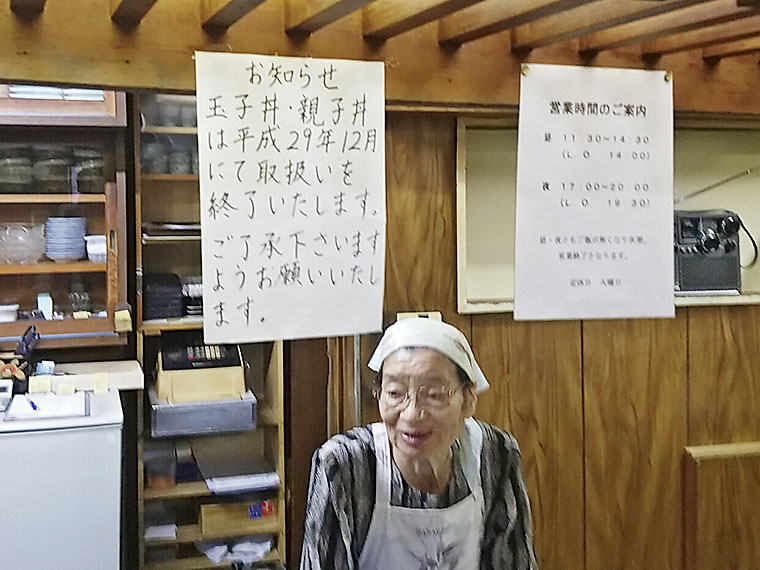 お知らせ
玉子丼・親子丼
は平成29年12月
にて取扱いを
終了いたします。
ご了承下さいます
ようお願いいたし
ます。
営業時間のご案内
昼 11:30~14:30
(L.O. 14:00)
夜 17:00~20:00
(L.O. 19:30)
昼・夜ともご飯が無くなり次第、
営業終了となります。
定休日 火曜日